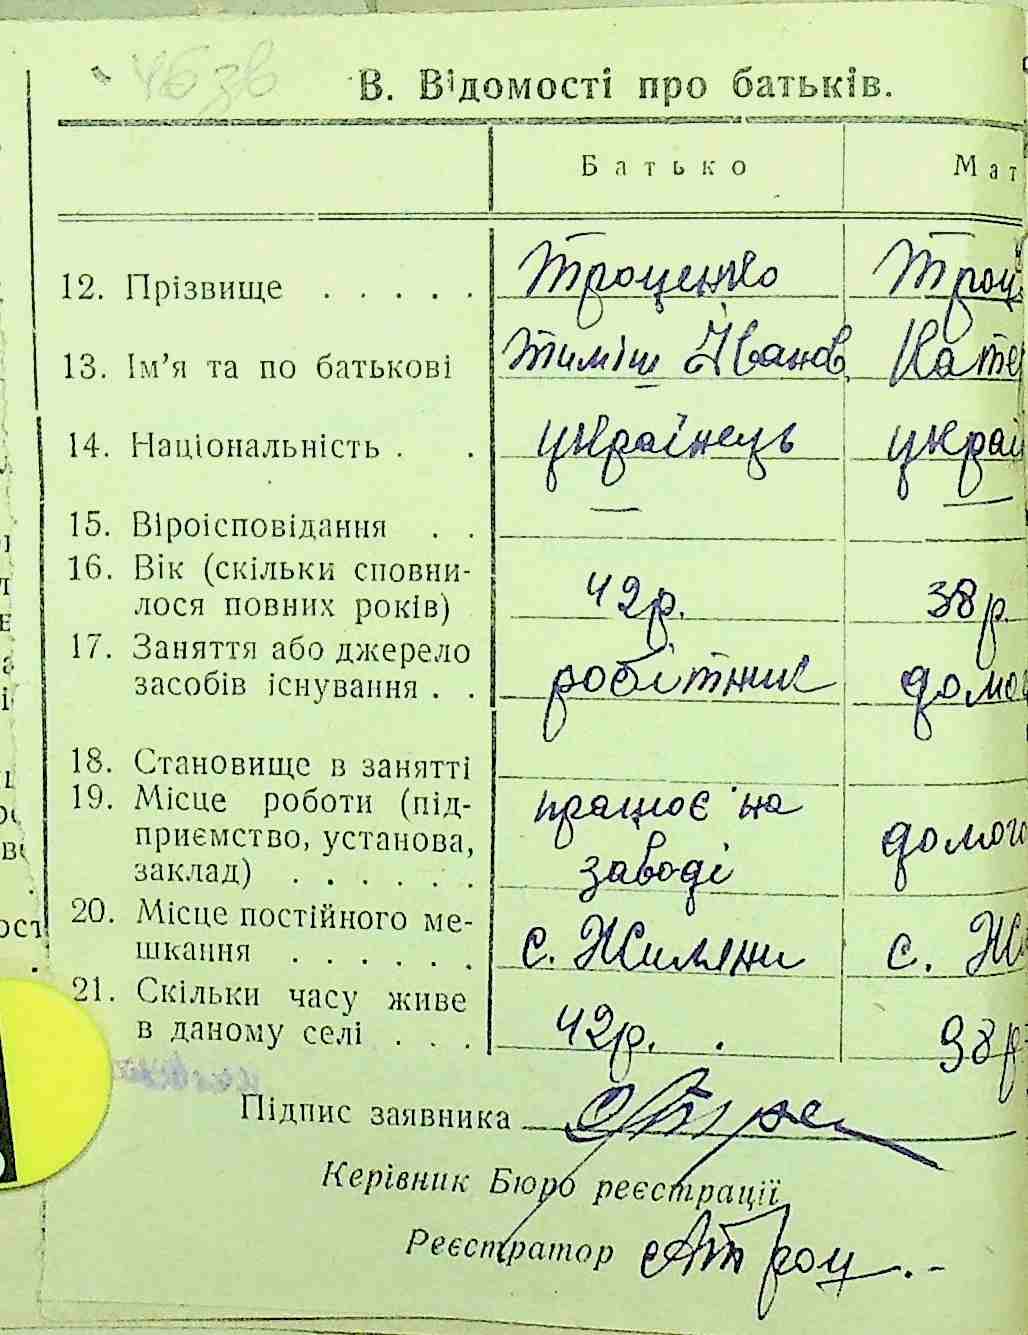 В. Відомості про батьків.
Батько Мат
12. Прізвище . . . . . Троценко Троц
13. Ім'я та по батькові Тиміш Іванов. Кате
14. Національність . . українець украї
15. Віроісповідання . . —
16. Вік (скільки сповни-
лося повних років) 42р. 38р.
17. Заняття або джерело
засобів існування . . робітник домог
18. Становище в занятті
19. Місце роботи (під- працює на
приємство, установа, домог
заклад) . . . . . . заводі
20. Місце постійного ме-
шкання . . . . . . с. Жиляни с. Ж
21. Скільки часу живе
в даному селі . . . 42р. 38р.
Підпис заявника
Керівник Бюро реєстрації
Реєстратор